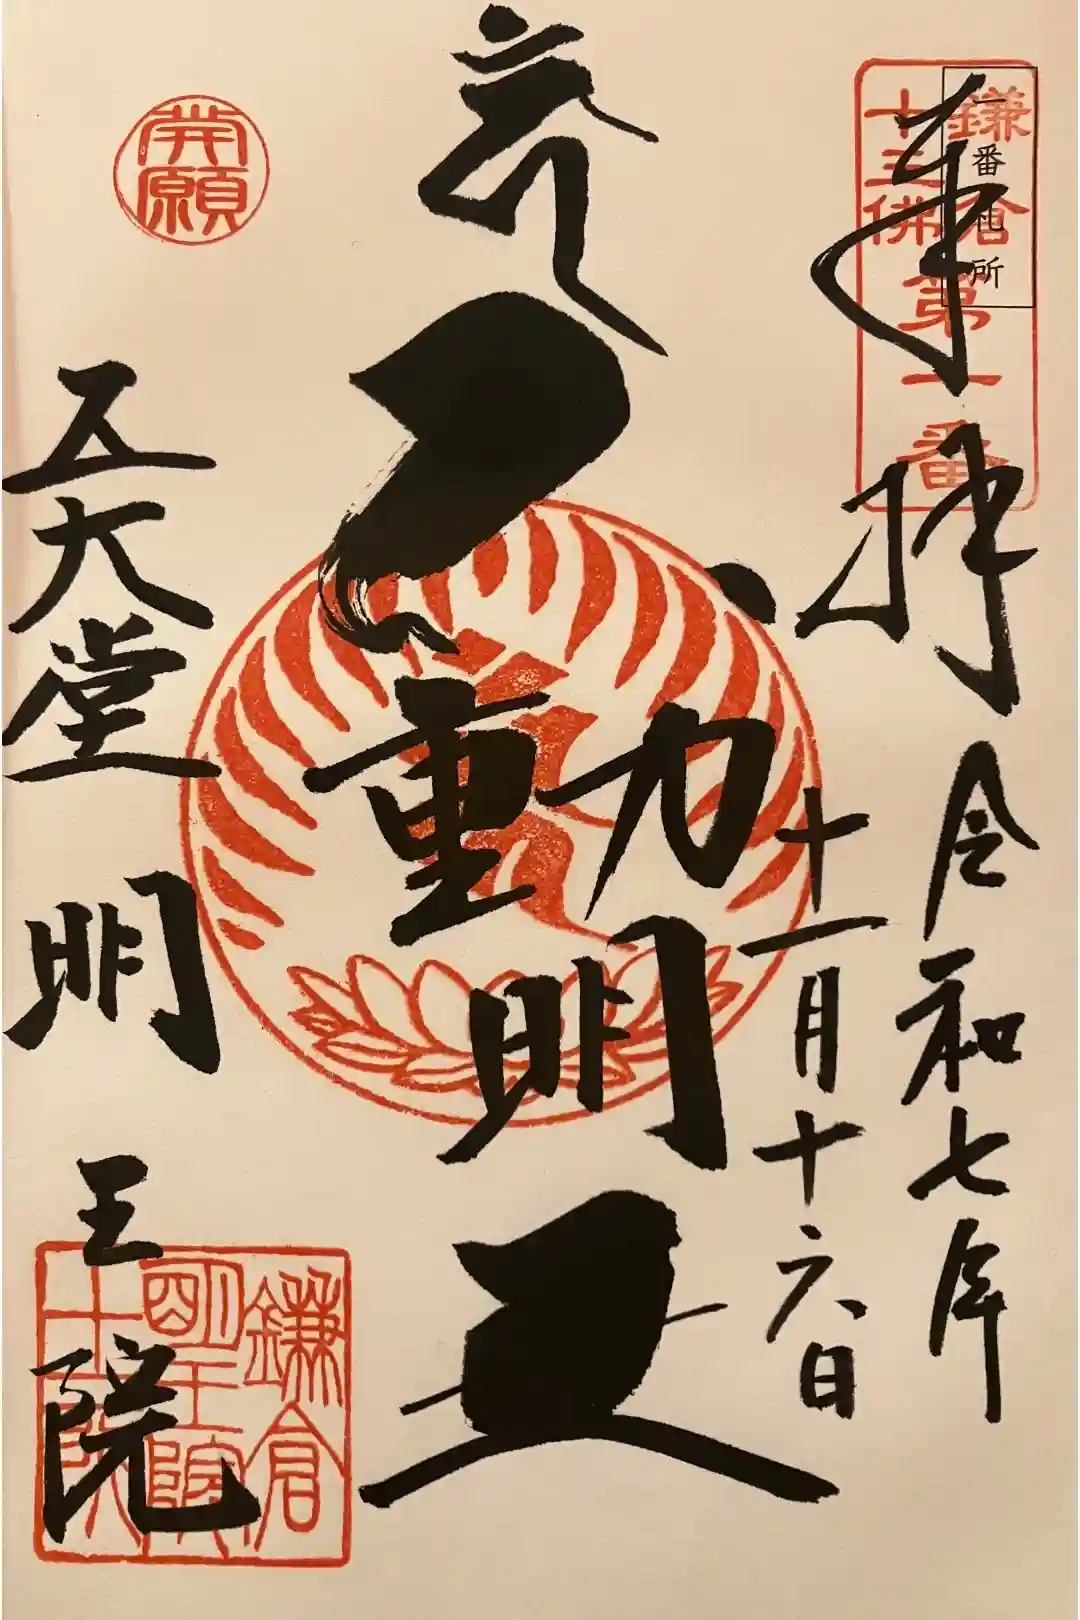 奉拝
令和七年
十一月十六日
鎌倉
十三佛
第一番
一番札所
不動明王
開願
五大堂
明王院
鎌倉
明王院